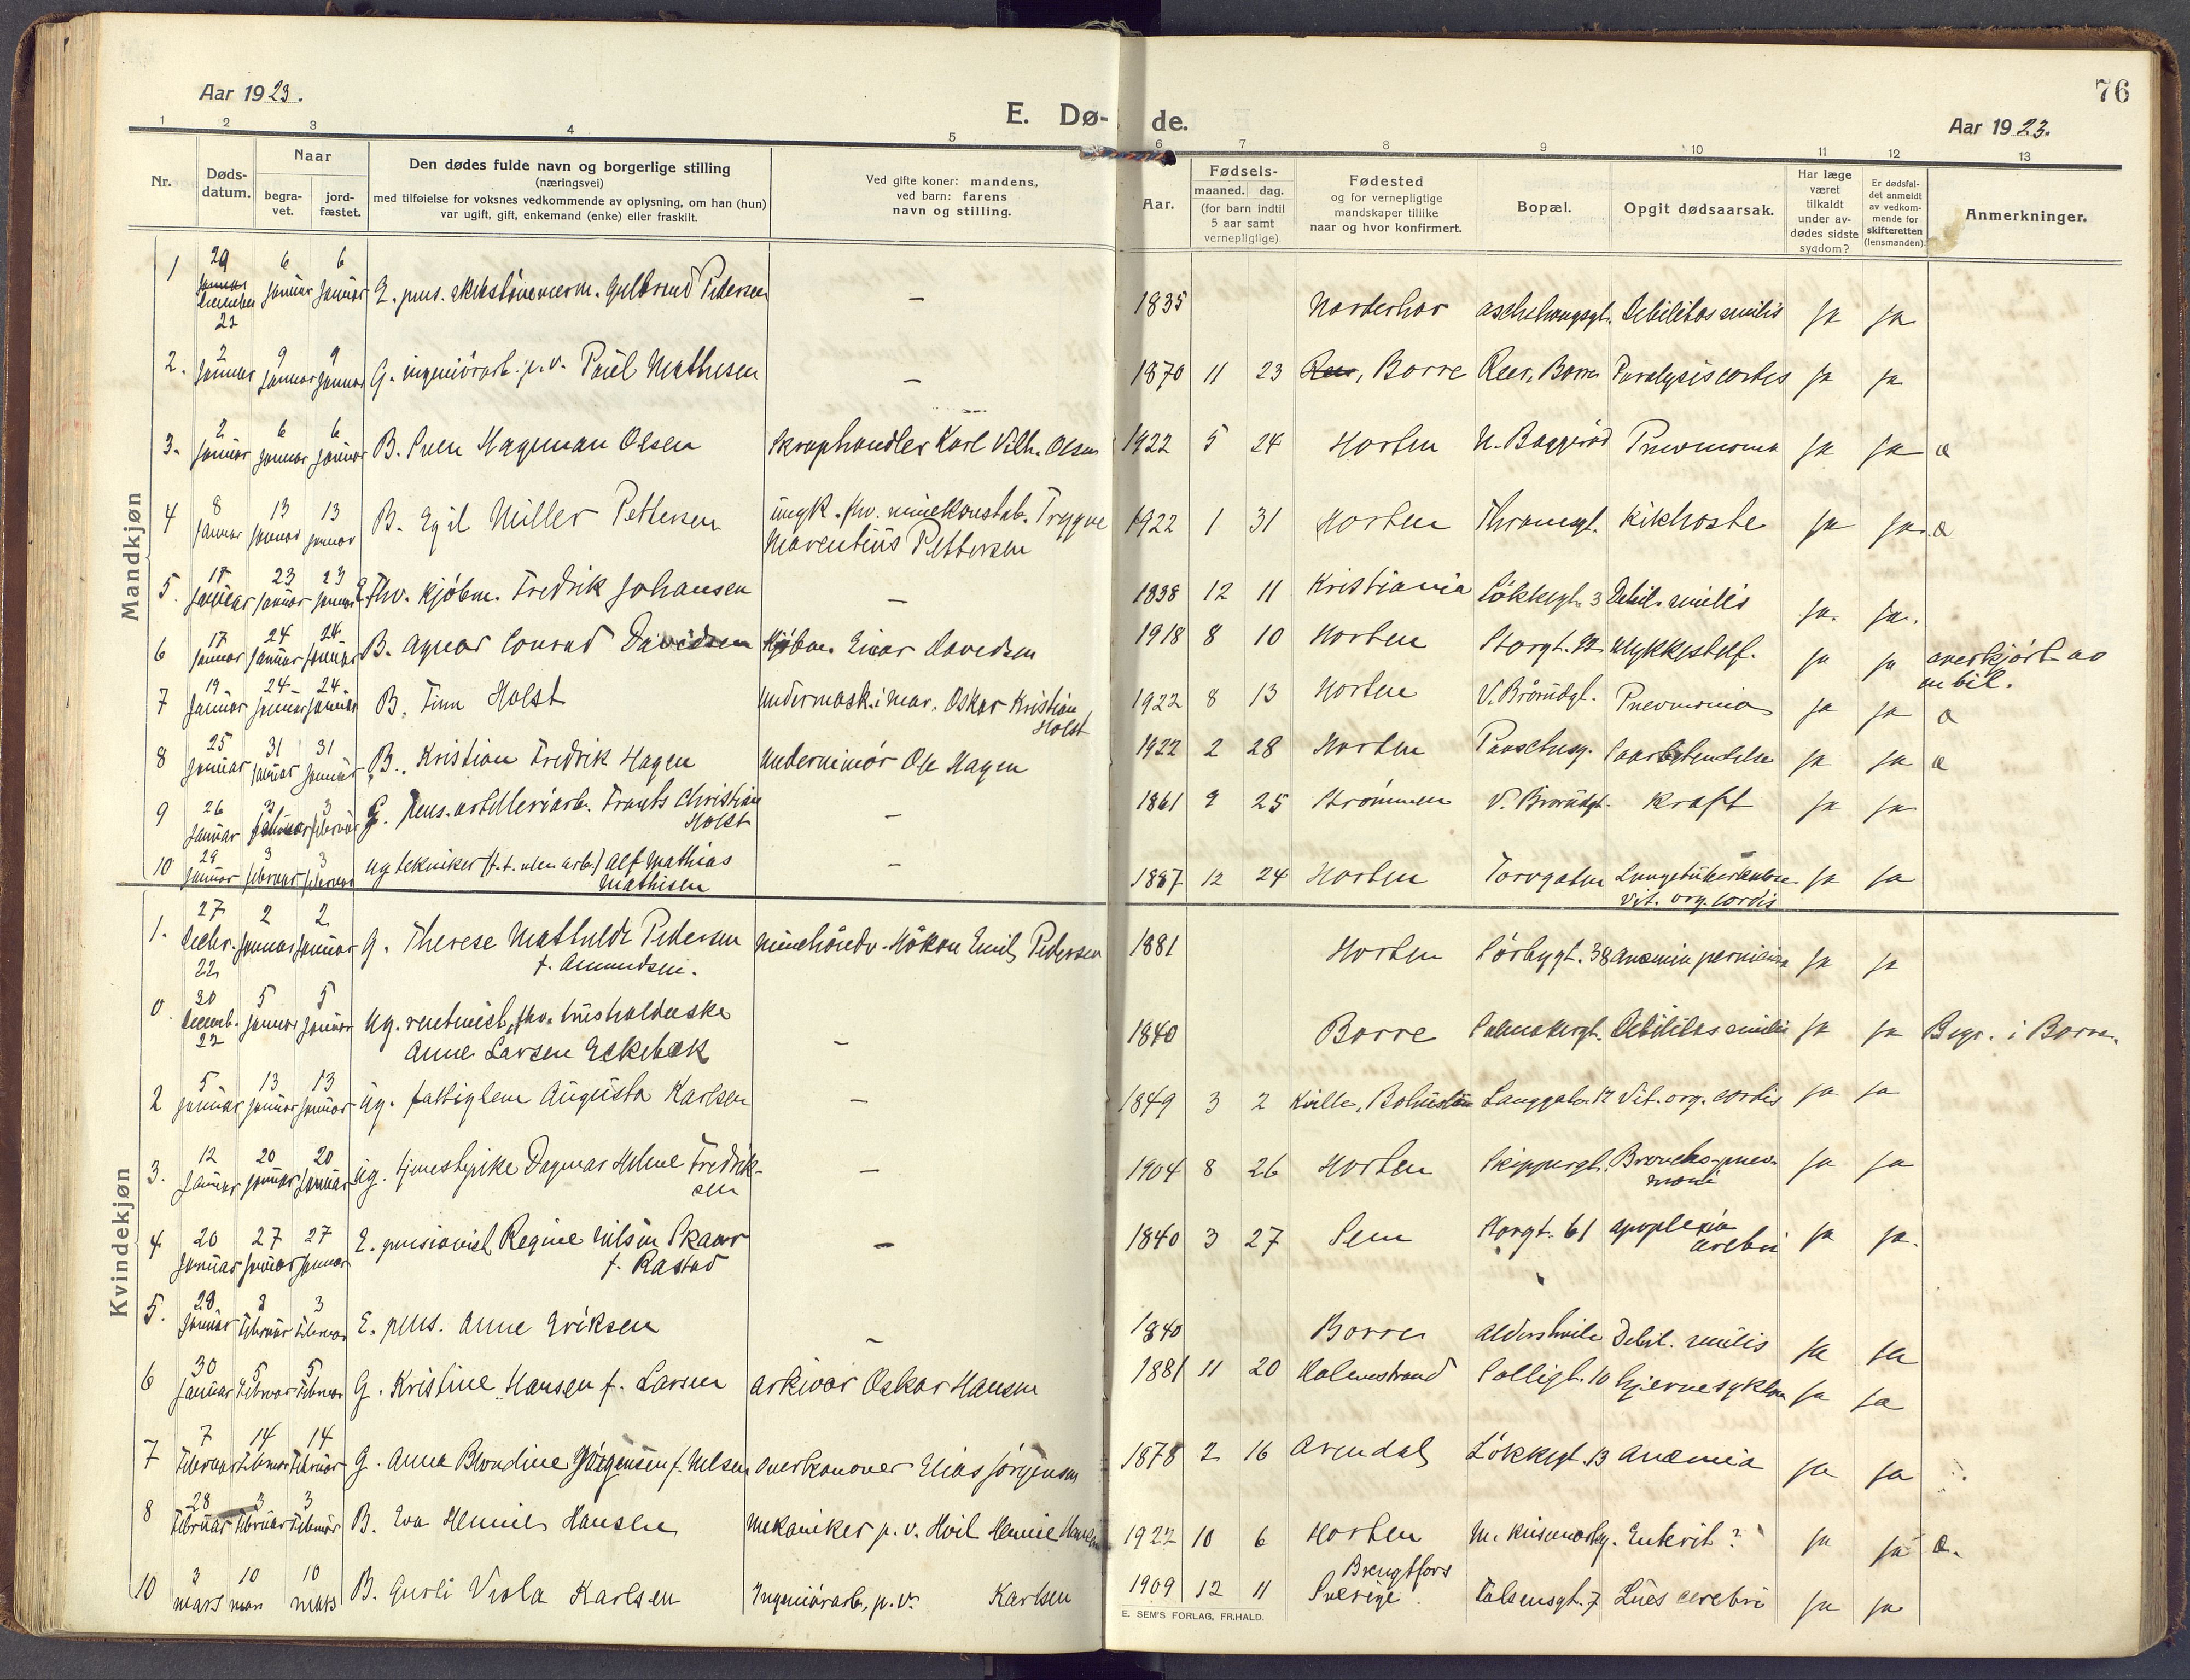 76
Aar 1923.
E. Dø- de.
Aar 1923.
1 2 3 4 5 6 7 8 9 10 11 12 13
Nr.
Døds-
datum.
Naar
begra-
vet.
jord-
fæstet.
Den dødes fulde navn og borgerlige stilling
(næringsvei)
med tilføielse for voksnes vedkommende av oplysning, om han (hun)
var ugift, gift, enkemand (enke) eller fraskilt.
Ved gifte koner: mandens,
ved barn: farens
navn og stilling.
Aar.
Fødsels-
maaned. dag.
(for barn indtil
5 aar samt
vernepligtige).
Fødested
og for vernepligtige
mandskaper tillike
naar og hvor konfirmert.
Bopæl.
Opgit dødsaarsak.
Har læge
været
tilkaldt
under av-
dødes sidste
sygdom?
Er dødsfal-
det anmeldt
av vedkom-
mende for
skifteretten
(lensmanden).
Anmerkninger.
Mandkjøn
1 29 december 22 6 januar 6 januar E. pens. Gulbrand Pedersen — 1835 Norderhov Debilitas senilis ja ja
2. 2 januar 9 januar 9 januar G. ingeniörarb. p.v. Paul Mathisen — 1870 11 23 Borre Reer, Borre Paralysis cordis ja ja
3. 2 januar 6 januar 6 januar B. Sven Hagman Olsen Skraphandler Karl Vilh. Olsen 1922 5 24 Horten N. Baggeröd Pneumonia ja ja a
4 8 januar 13 januar 13 januar B. Egil Miller Pettersen ungk. fhv. minekonstab. Trygve
Marentius Pettersen 1922 1 31 Horten Kikhoste ja ja a
5. 17 januar 23 januar 23 januar E. Fhv. Kjøbm. Fredrik Johansen — 1838 12 11 Kristiania Løkkegt. 3 Debil. senilis ja. ja.
6 17 januar 24 januar 24 januar B. Agnar Conrad Davidsen Kjøbm. Einar Davidsen 1918 8 10 Horten Storgt. Ulykkestilf. ja ja overkjört av
en bil.
7 19 januar 24 januar 24 januar B. Finn Holst Undermask. i mar. Oskar Kristian
Holst 1922 8 13 Horten V. Brårudgt. Pneumonia ja ja a
8 25 januar 31 januar 31 januar B. Kristian Fredrik Hagen Underminör Ole Hagen 1922 2 28 Horten ja ja a
9 26 januar 3 februar 3 februar G. Pens. artilleriarb. Frants Christian
Holst — 1861 9 25 Strömmen V. Brårudgt. Kræft ja ja
10 29 januar 3 februar 3 februar ug tekniker (f.t. uten arb.) Alf Mathias
Mathisen — 1887 12 24 Horten Torvgaten Lungetuberkulose
Vit. org. cordis ja ja
Kvindekjøn
1. 27 decbr. 22 2 januar 2 januar G. Therese Mathilde Pedersen
f. Amundsen. minehåndv. Håkon Emil Pedersen 1881 Horten 38 Anæmia perniciosa ja ja
0. 30 decemb. 22 5 januar 5 januar ug. rentenist, fhv. husholderske
Anne Larsen Eskebæk — 1840 Borre Debilitas senilis ja ja Begr. i Borre.
2 5 januar 13 januar 13 januar ug. fattiglem Augusta Karlsen — 1849 3 2 Kville, Bohuslän Langgaten 17 Vit. org. cordis ja ja
3. 12 januar 20 januar 20 januar ug. tjenestepike Dagmar Helene Fredrik-
sen — 1904 8 26 Horten Skippergt. Broncho-pneu-
moni ja ja
4 20 januar 27 januar 27 januar E. pensionist Regine Nilsen Skaar
f. Rastad — 1840 3 27 Sem Storgt. 61 apoplexia
cerebri ja ja.
5. 29 januar 3 februar 3 februar E. pens. Anne Eriksen — 1840 Borre Aldershvile Debil. senilis ja ja
6 30 januar 5 februar 5 februar G. Kristine Hansen f. Larsen arkivar Oskar Hansen 1881 11 20 Holmestrand 10 hjernesykdom ja ja
7 7 februar 14 februar 14 februar G. Anna Blondine Jörgensen f. Nilsen Overkanoner Elias Jörgensen 1878 2 16 Arendal Løkkegt. 13 Anæmia ja ja
8 28 februar 3 februar 3 februar B. Eva Hennie Hansen Mekaniker p.v. Hennie Hansen 1922 10 6 Horten Enterit? ja ja a.
10 3 mars 10 mars 10 mars B. Gurli Viola Karlsen Ingeniörarb. p.v. Karlsen 1909 12 11 Bengtfors
Sverige. Falsensgt. 7 Lues cerebri ja ja
E. SEM'S FORLAG, FR.HALD.